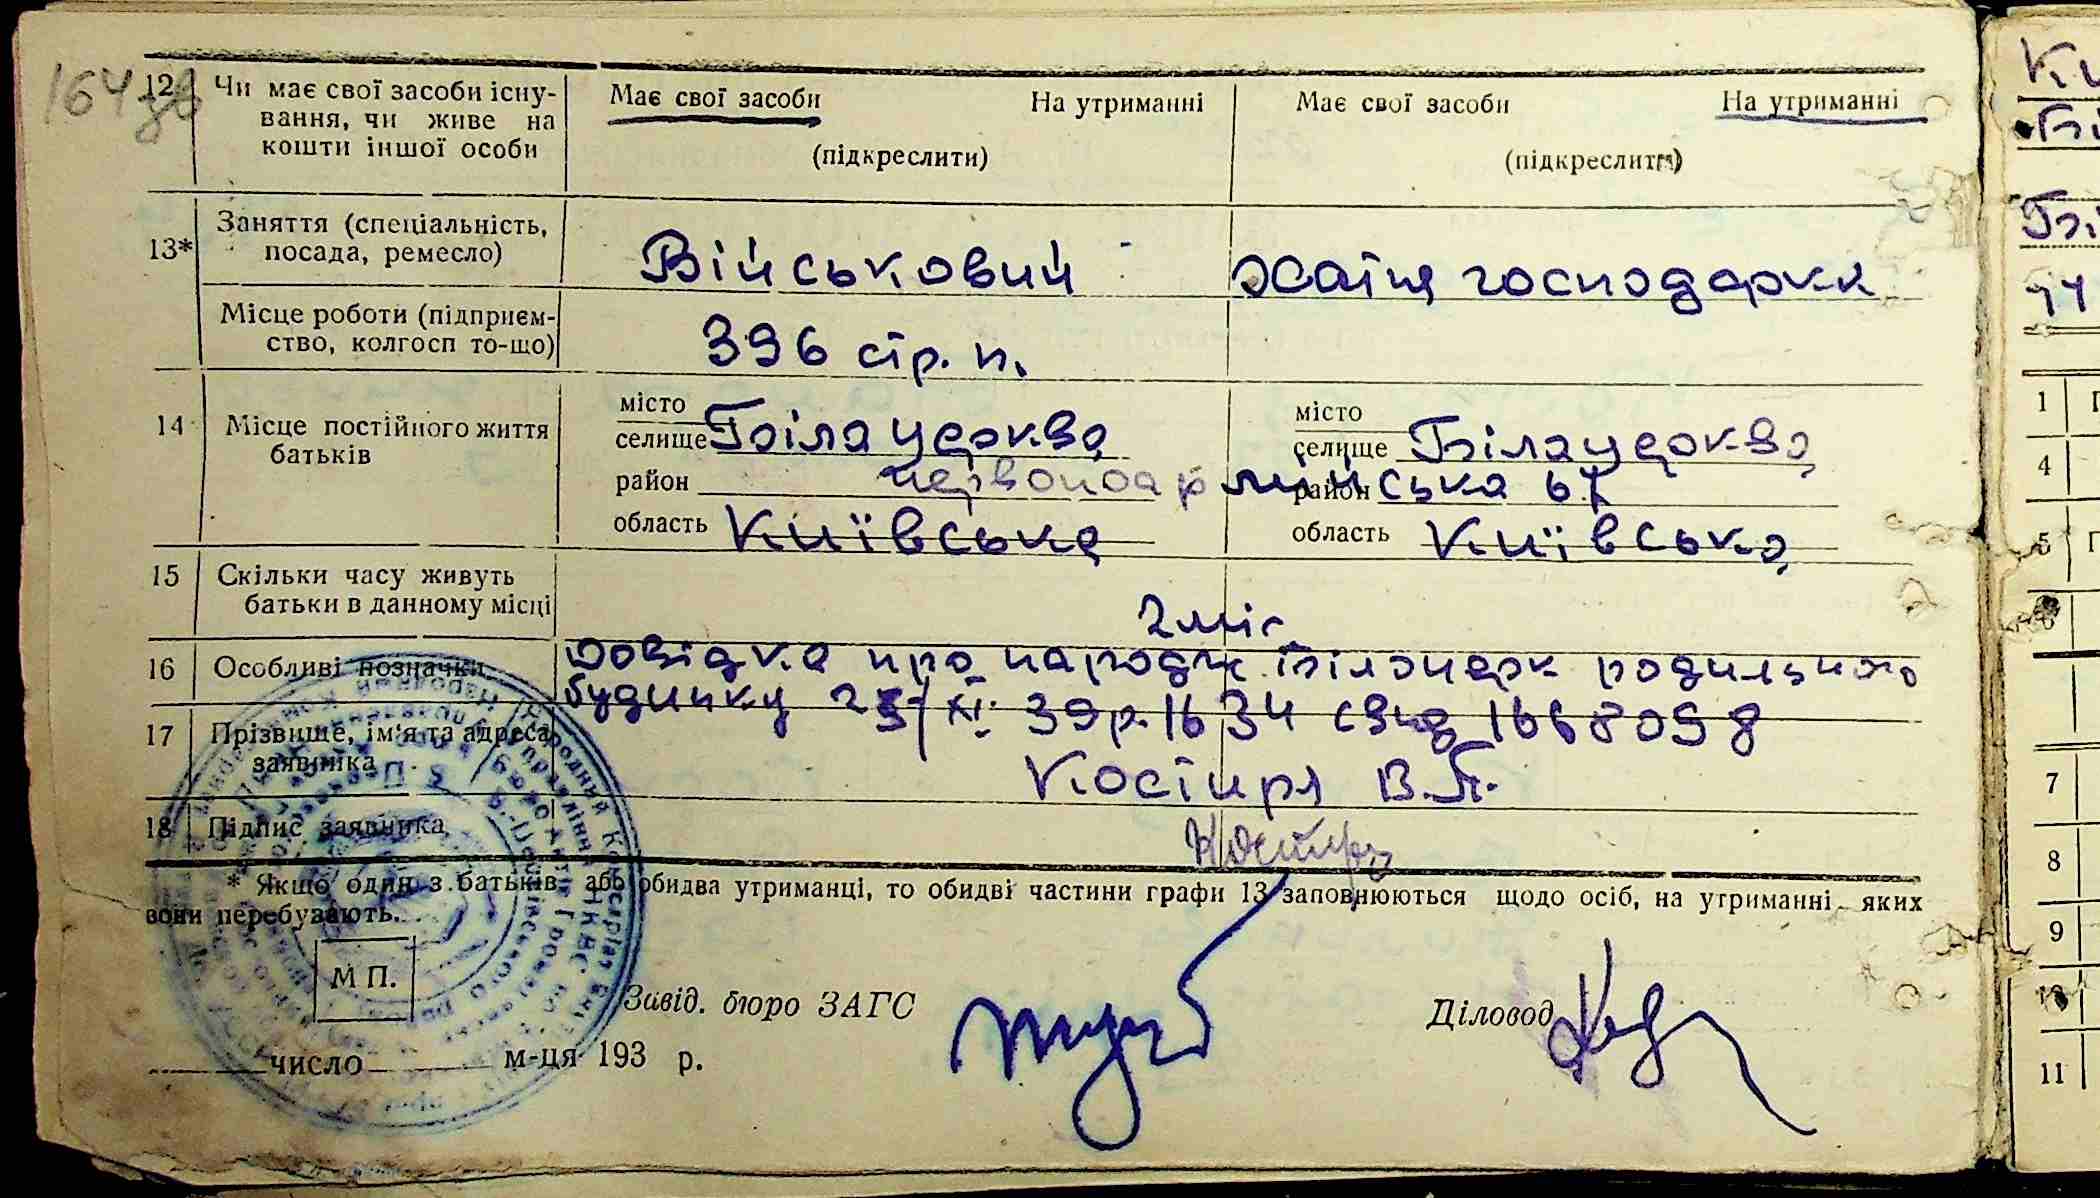 164 зв
12 Чи має свої засоби існу-
вання, чи живе на
кошти іншої особи
Має свої засоби На утриманні
(підкреслити)
Має свої засоби На утриманні
(підкреслити)
13* Заняття (спеціальність,
посада, ремесло)
Військовий
хатня господарка
Місце роботи (підприєм-
ство, колгосп то-що)
396 стр. п.
14 Місце постійного життя
батьків
місто
селище Біла церква
район Червоноармійська 67
область Київська
місто
селище Біла церква
район
область Київська
15 Скільки часу живуть
батьки в данному місці
2 міс.
16 Особливі позначки
Довідка про народж Білоцерк родильного
будинку 25/XI. 39р. 1634 свид 1668058
17 Прізвище, ім'я та адреса
заявника
Костиря В.П.
18 Підпис заявника
Костиря
* Якщо один з батьків, або обидва утриманці, то обидві частини графи 13 заповнюються щодо осіб, на утриманні яких
вони перебувають.
М П.
Завід. бюро ЗАГС
Діловод
число м-ця 193 р.
1
4
5
7
8
9
10
11